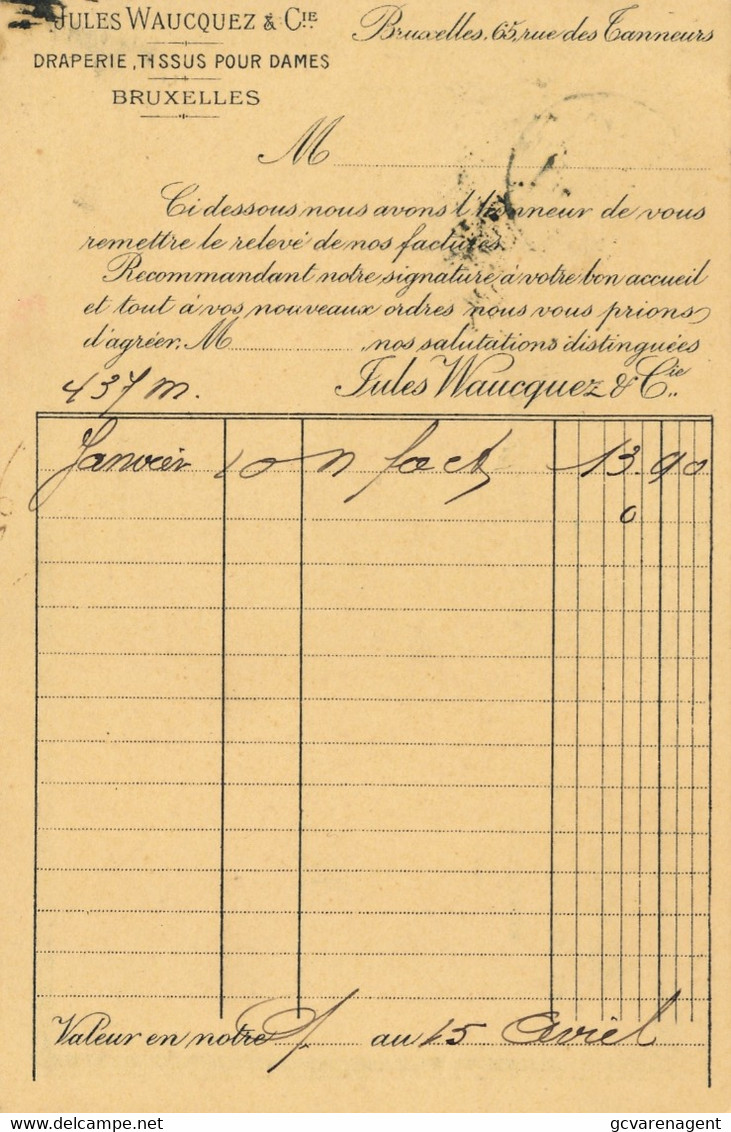 JULES WAUCQUEZ & CIE
Bruxelles, 65, rue des Tanneurs
DRAPERIE, TISSUS POUR DAMES
BRUXELLES
M
Ci dessous nous avons l'honneur de vous
remettre le relevé de nos factures.
Recommandant notre signature à votre bon accueil
et tout à vos nouveaux ordres nous vous prions,
d'agréer, M , nos salutations distinguées
437 m. Jules Waucquez & Cie.
Janvier 10 n fact 13.90
0
Valeur en notre au 15 Avril
delcampe.net
gcvarenagent